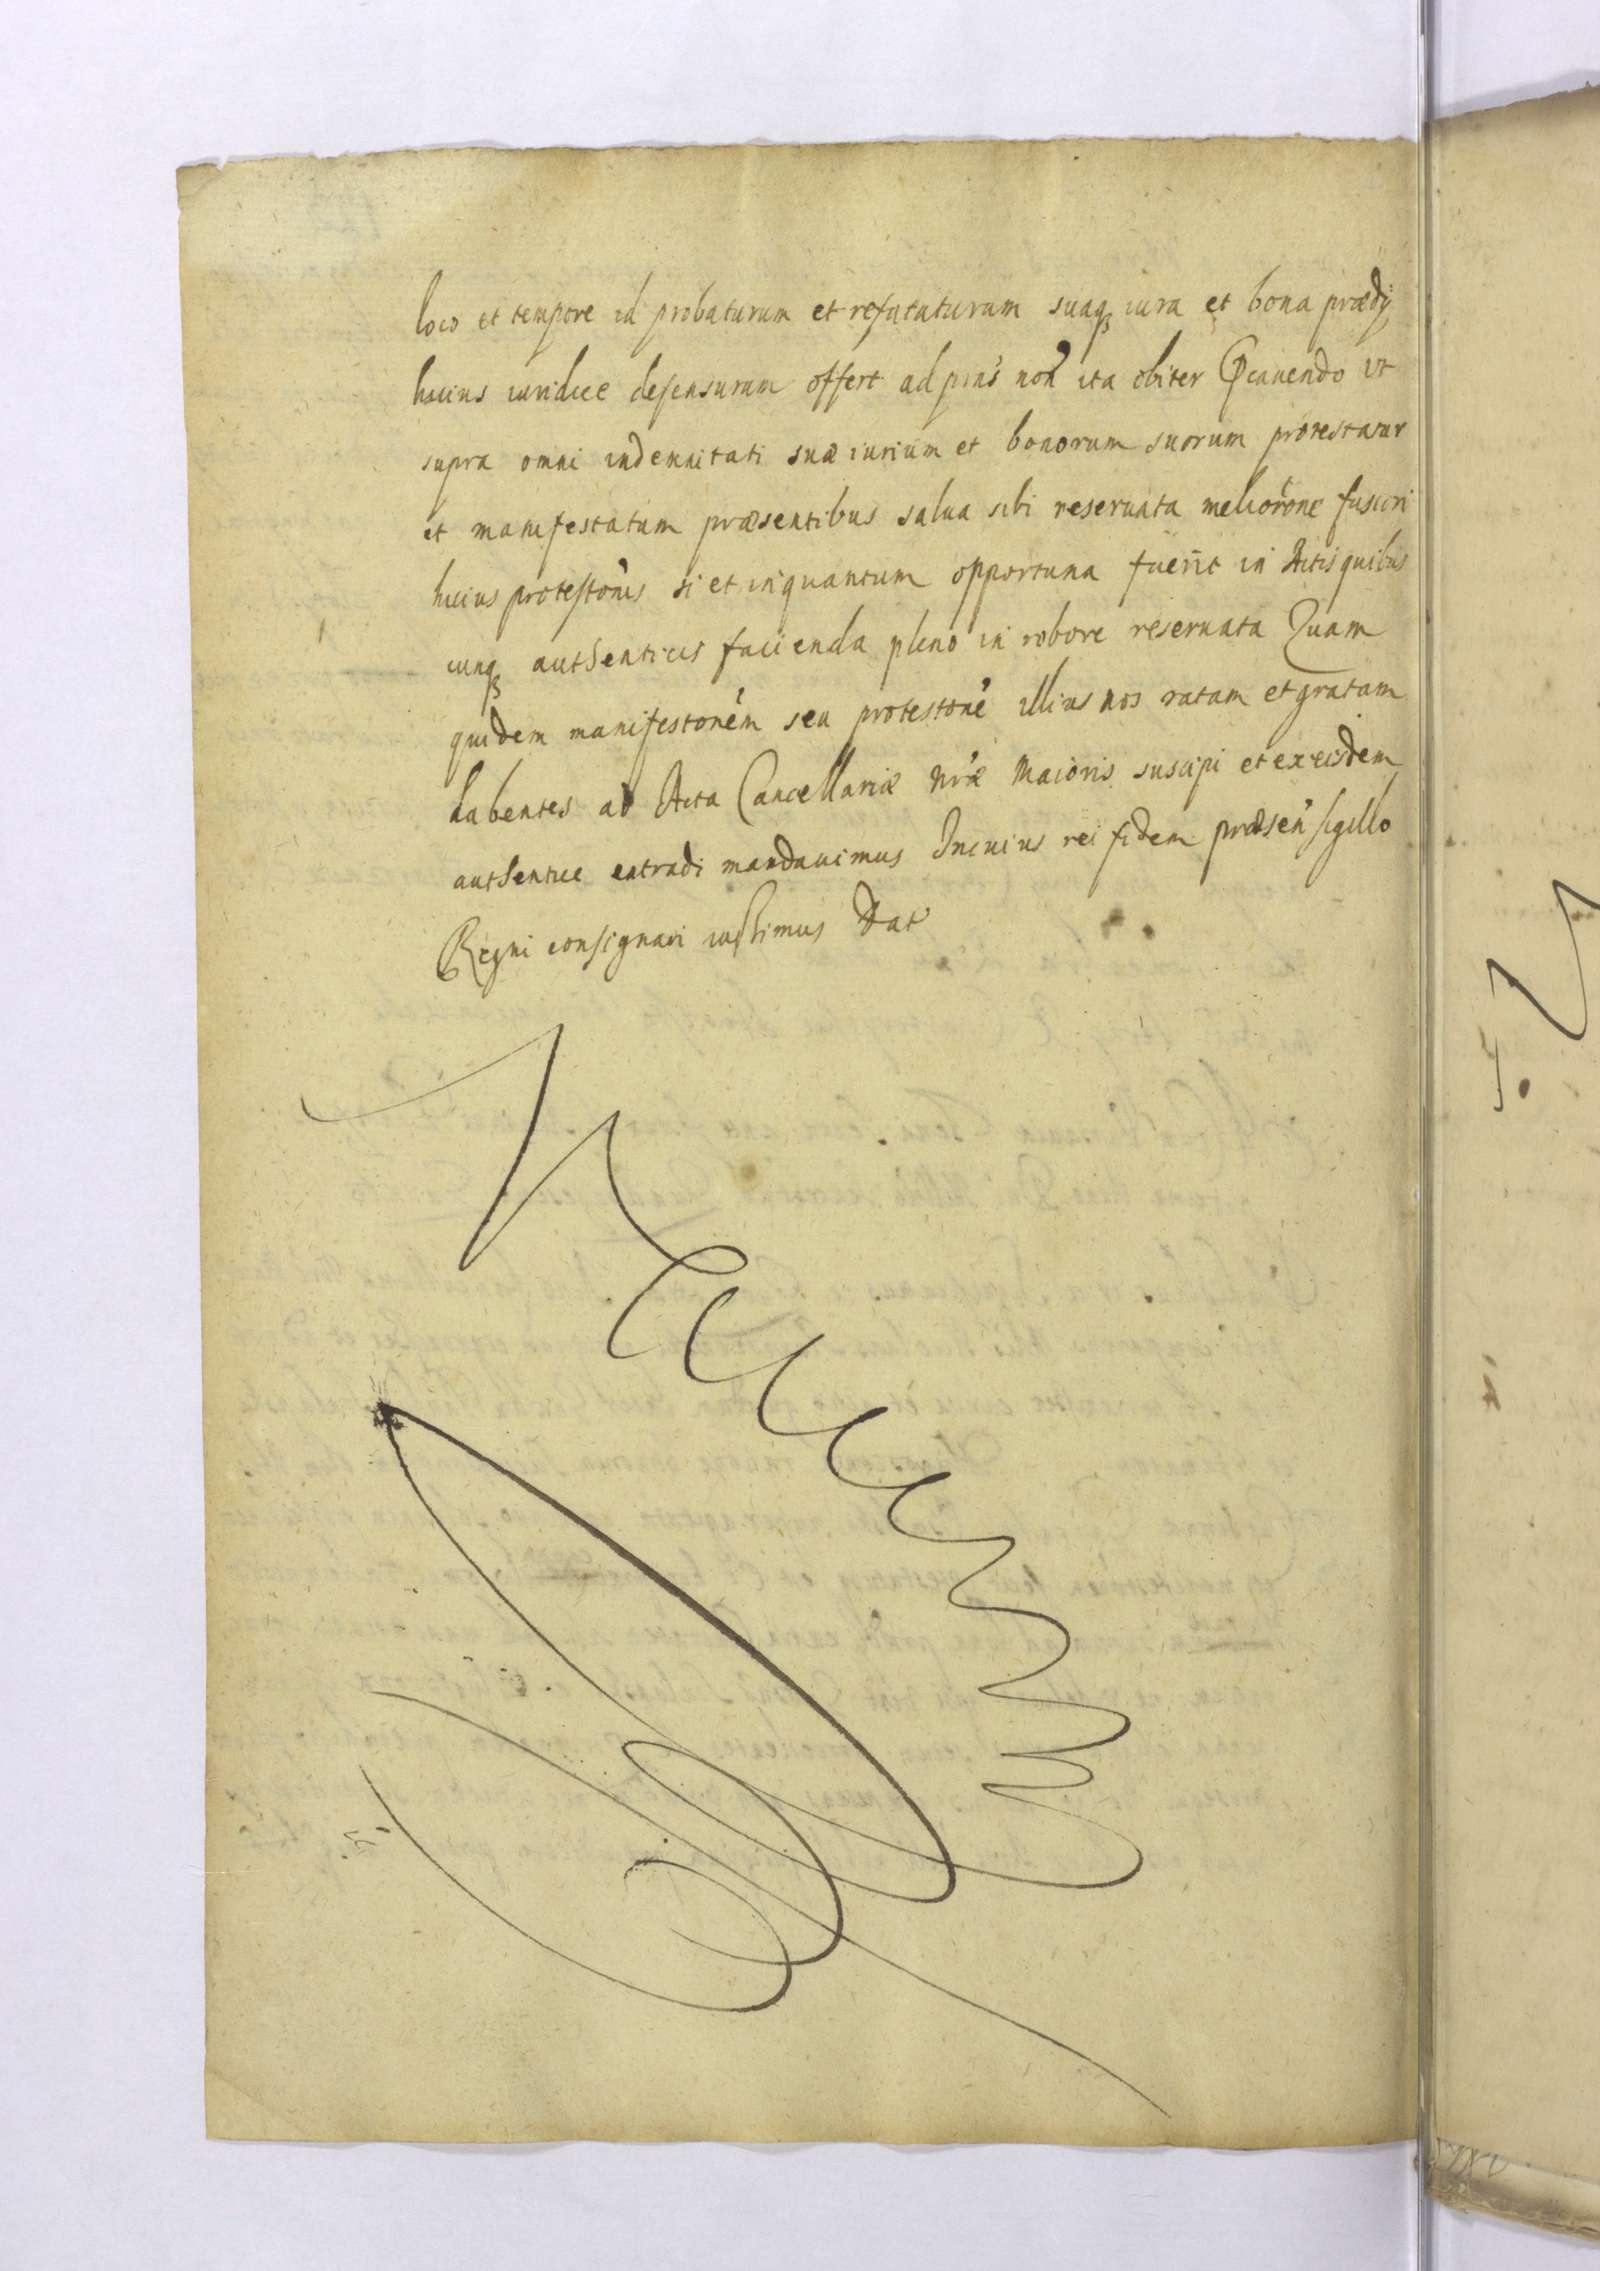 loco et tempore id probaturum et refutaturum suaq iura et bona prædij
huius iuridice defensurum offert ad præns non ita obiter Præcauendo vt
supra omni indemnitati suæ iurium et bonorum suorum protestatur
et manifestatum præsentibus salua sibi reseruata meliorōne fusiori
huius protestonis si et inquantum opportuna fuerit in Actis quibus
cunq authenticis facienda pleno in robore reseruata Quam
quidem manifestonem seu protestone illius nos ratam et gratam
habentes ad Acta Cancellariæ Nræ Maioris suscipi et ex eisdem
authentice extradi mandauimus In cuius rei fidem præsen sigillo
Regni consignari iussimus Dat